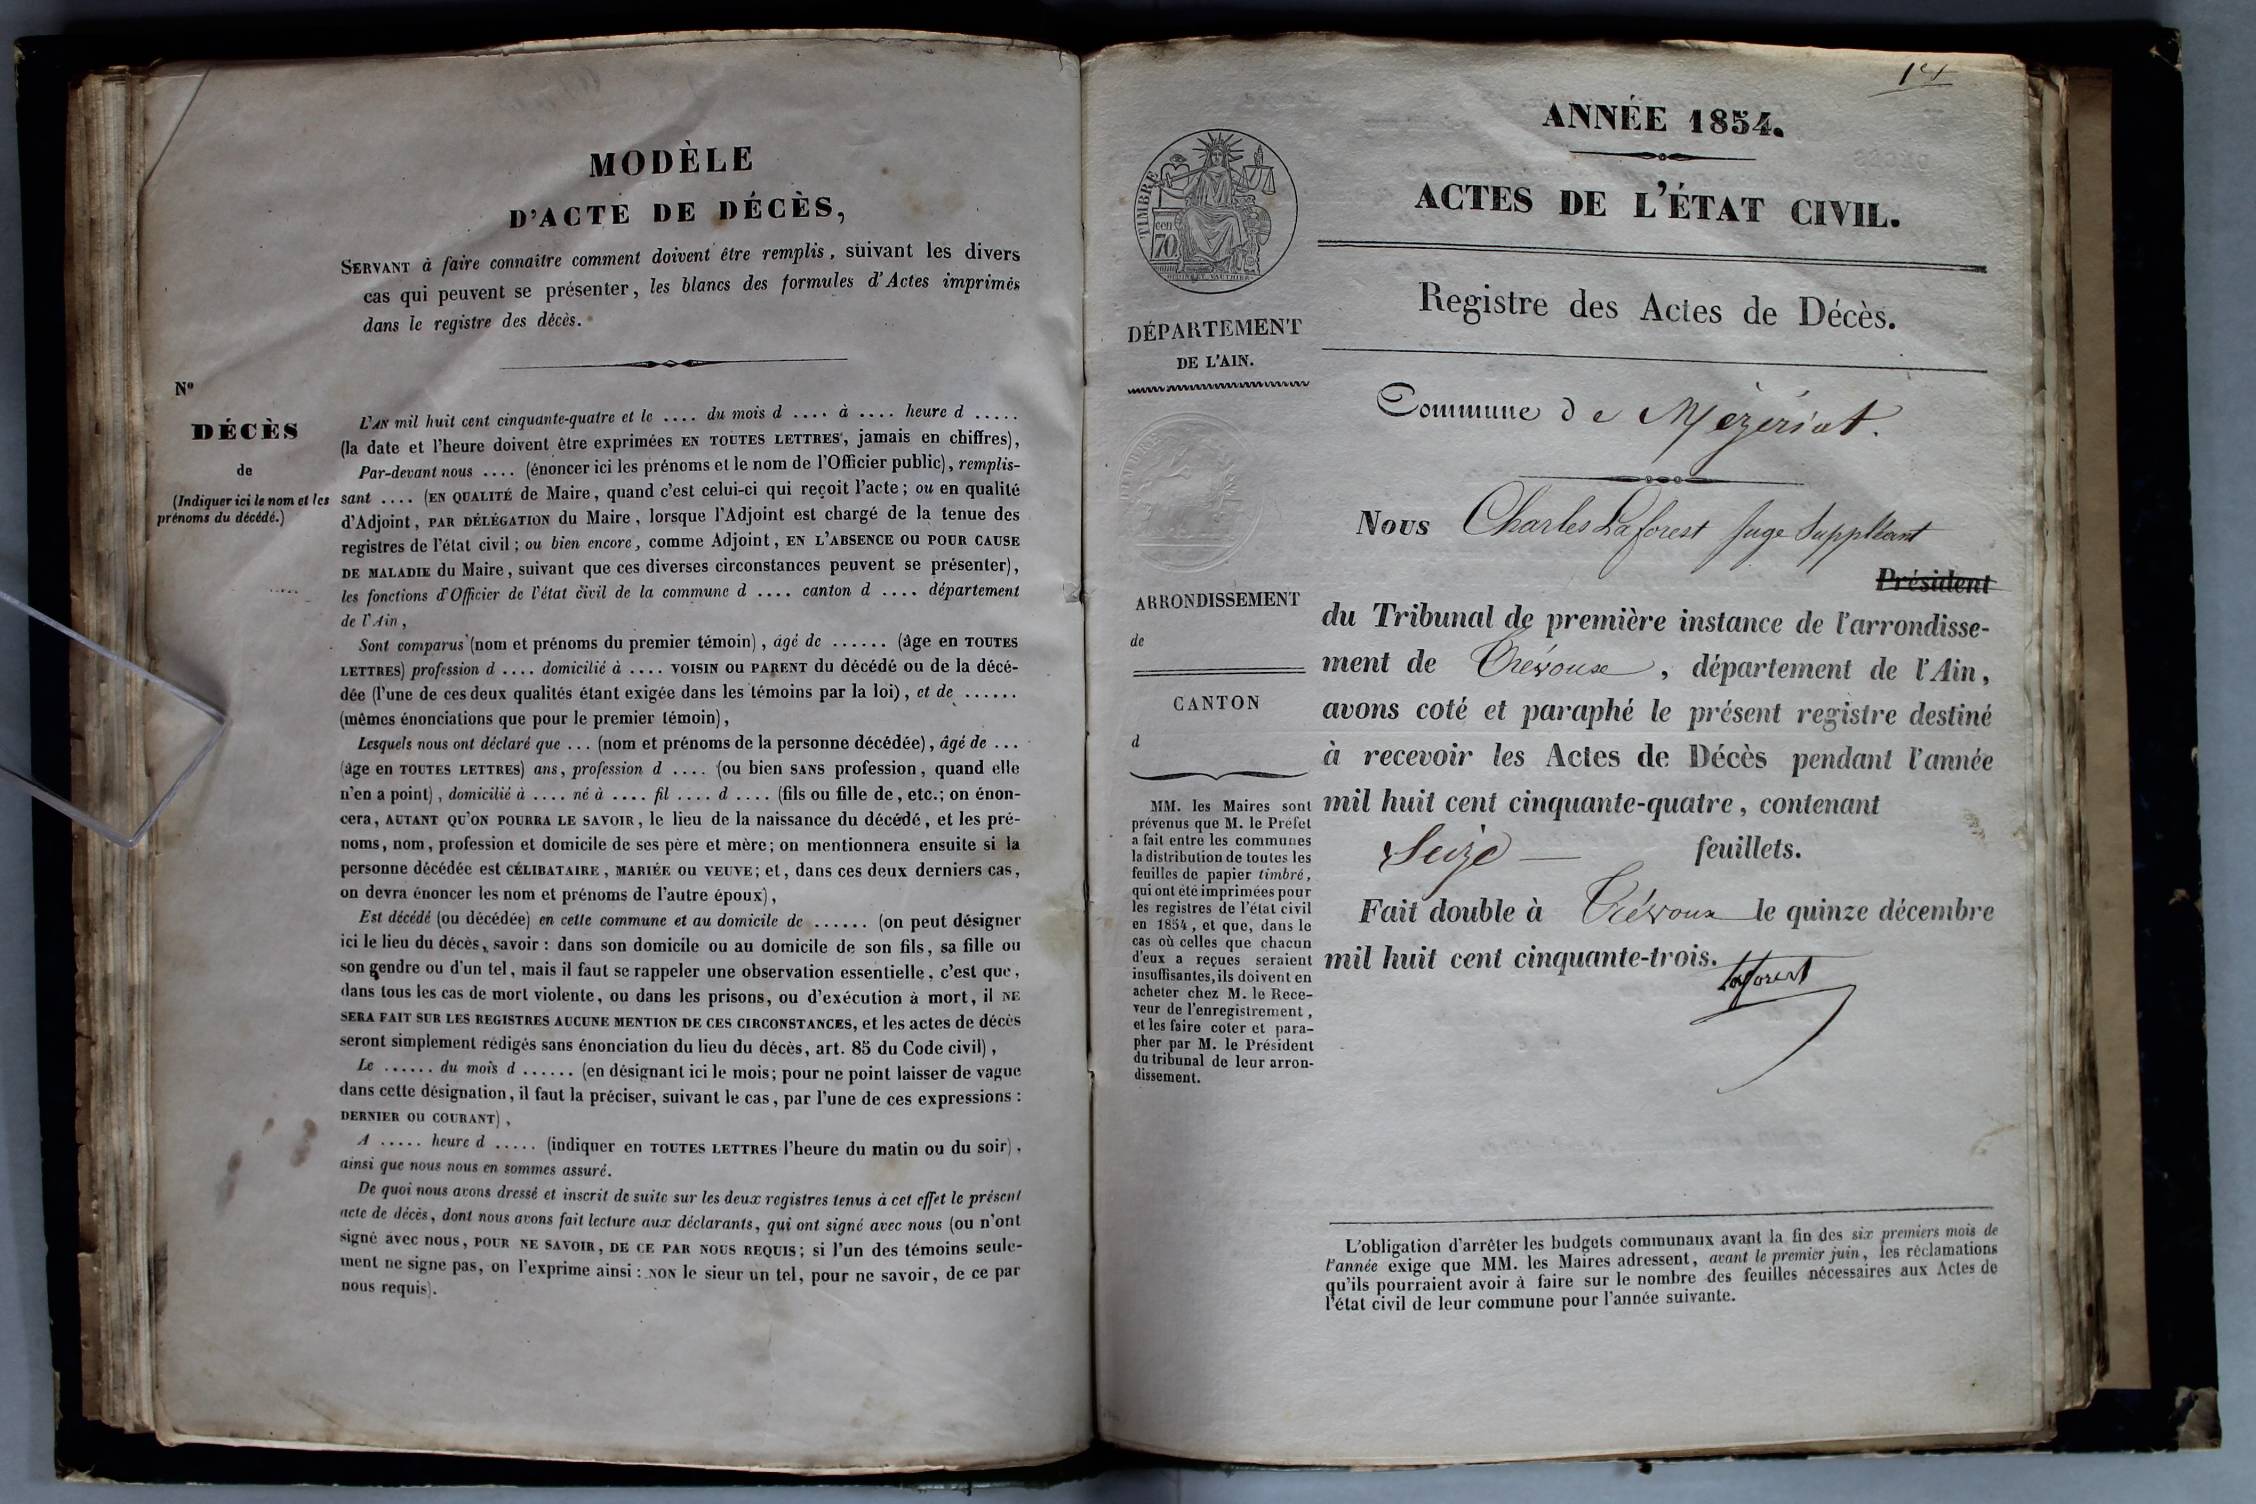 MODÈLE
D'ACTE DE DÉCÈS,
SERVANT à faire connaître comment doivent être remplis, suivant les divers
cas qui peuvent se présenter, les blancs des formules d'Actes imprimés
dans le registre des décès.
N°
DÉCÈS
de
(Indiquer ici le nom et les
prénoms du décédé.)
L'AN mil huit cent cinquante-quatre et le .... du mois d .... à .... heure d .....
(la date et l'heure doivent être exprimées EN TOUTES LETTRES, jamais en chiffres),
Par-devant nous .... (énoncer ici les prénoms et le nom de l'Officier public), remplis-
sant .... (EN QUALITÉ de Maire, quand c'est celui-ci qui reçoit l'acte; ou en qualité
d'Adjoint, PAR DÉLÉGATION du Maire, lorsque l'Adjoint est chargé de la tenue des
registres de l'état civil; ou bien encore, comme Adjoint, EN L'ABSENCE OU POUR CAUSE
DE MALADIE du Maire, suivant que ces diverses circonstances peuvent se présenter),
les fonctions d'Officier de l'état civil de la commune d .... canton d .... département
de l'Ain,
Sont comparus (nom et prénoms du premier témoin), âgé de ...... (âge en TOUTES
LETTRES) profession d .... domicilié à .... VOISIN OU PARENT du décédé ou de la décé-
dée (l'une de ces deux qualités étant exigée dans les témoins par la loi), et de ......
(mêmes énonciations que pour le premier témoin),
Lesquels nous ont déclaré que ... (nom et prénoms de la personne décédée), âgé de ...
(âge en TOUTES LETTRES) ans, profession d .... (ou bien SANS profession, quand elle
n'en a point), domicilié à .... né à .... fil .... d .... (fils ou fille de, etc.; on énon-
cera, AUTANT QU'ON POURRA LE SAVOIR, le lieu de la naissance du décédé, et les pré-
noms, nom, profession et domicile de ses père et mère; on mentionnera ensuite si la
personne décédée est CÉLIBATAIRE, MARIÉE OU VEUVE; et, dans ces deux derniers cas,
on devra énoncer les nom et prénoms de l'autre époux),
Est décédé (ou décédée) en cette commune et au domicile de ...... (on peut désigner
ici le lieu du décès, savoir : dans son domicile ou au domicile de son fils, sa fille ou
son gendre ou d'un tel, mais il faut se rappeler une observation essentielle, c'est que,
dans tous les cas de mort violente, ou dans les prisons, ou d'exécution à mort, il NE
SERA FAIT SUR LES REGISTRES AUCUNE MENTION DE CES CIRCONSTANCES, et les actes de décès
seront simplement rédigés sans énonciation du lieu du décès, art. 85 du Code civil),
Le ...... du mois d ...... (en désignant ici le mois; pour ne point laisser de vague
dans cette désignation, il faut la préciser, suivant le cas, par l'une de ces expressions :
DERNIER OU COURANT),
A ..... heure d ..... (indiquer en TOUTES LETTRES l'heure du matin ou du soir),
ainsi que nous nous en sommes assuré.
De quoi nous avons dressé et inscrit de suite sur les deux registres tenus à cet effet le présent
acte de décès, dont nous avons fait lecture aux déclarants, qui ont signé avec nous (ou n'ont
signé avec nous, POUR NE SAVOIR, DE CE PAR NOUS REQUIS; si l'un des témoins seule-
ment ne signe pas, on l'exprime ainsi : NON le sieur un tel, pour ne savoir, de ce par
nous requis).
ANNÉE 1854.
ACTES DE L'ÉTAT CIVIL.
TIMBRE
cen
70.
Registre des Actes de Décès.
DÉPARTEMENT
DE L'AIN.
Commune de Mézériat.
Nous Charles Laforest Juge Suppléant
Président
du Tribunal de première instance de l'arrondisse-
ment de Trévoux, département de l'Ain,
avons coté et paraphé le présent registre destiné
à recevoir les Actes de Décès pendant l'année
mil huit cent cinquante-quatre, contenant
Seize feuillets.
Fait double à Trévoux le quinze décembre
mil huit cent cinquante-trois.
Laforest
ARRONDISSEMENT
de
CANTON
d
MM. les Maires sont
prévenus que M. le Préfet
a fait entre les communes
la distribution de toutes les
feuilles de papier timbré,
qui ont été imprimées pour
les registres de l'état civil
en 1854, et que, dans le
cas où celles que chacun
d'eux a reçues seraient
insuffisantes, ils doivent en
acheter chez M. le Rece-
veur de l'enregistrement,
et les faire coter et para-
pher par M. le Président
du tribunal de leur arron-
dissement.
L'obligation d'arrêter les budgets communaux avant la fin des six premiers mois de
l'année exige que MM. les Maires adressent, avant le premier juin, les réclamations
qu'ils pourraient avoir à faire sur le nombre des feuilles nécessaires aux Actes de
l'état civil de leur commune pour l'année suivante.